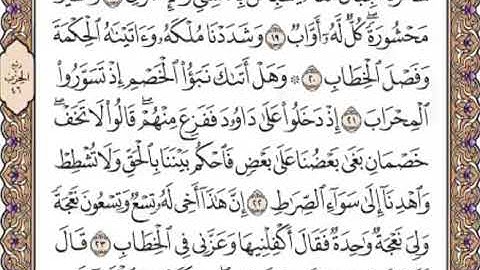 مَحْشُورَةً كُلٌّ لَّهُۥٓ أَوَّابٌ ١٩ وَشَدَدْنَا مُلْكَهُۥ وَءَاتَيْنَٰهُ ٱلْحِكْمَةَ
وَفَصْلَ ٱلْخِطَابِ ٢٠ ۞ وَهَلْ أَتَىٰكَ نَبَؤُا۟ ٱلْخَصْمِ إِذْ تَسَوَّرُوا۟
ٱلْمِحْرَابَ ٢١ إِذْ دَخَلُوا۟ عَلَىٰ دَاوُۥدَ فَفَزِعَ مِنْهُمْ ۖ قَالُوا۟ لَا تَخَفْ ۖ
خَصْمَانِ بَغَىٰ بَعْضُنَا عَلَىٰ بَعْضٍ فَٱحْكُم بَيْنَنَا بِٱلْحَقِّ وَلَا تُشْطِطْ
وَٱهْدِنَآ إِلَىٰ سَوَآءِ ٱلصِّرَٰطِ ٢٢ إِنَّ هَٰذَآ أَخِى لَهُۥ تِسْعٌ وَتِسْعُونَ نَعْجَةً
وَلِىَ نَعْجَةٌ وَٰحِدَةٌ فَقَالَ أَكْفِلْنِيهَا وَعَزَّنِى فِى ٱلْخِطَابِ ٢٣ قَالَ
ربع
الحزب
٤٦